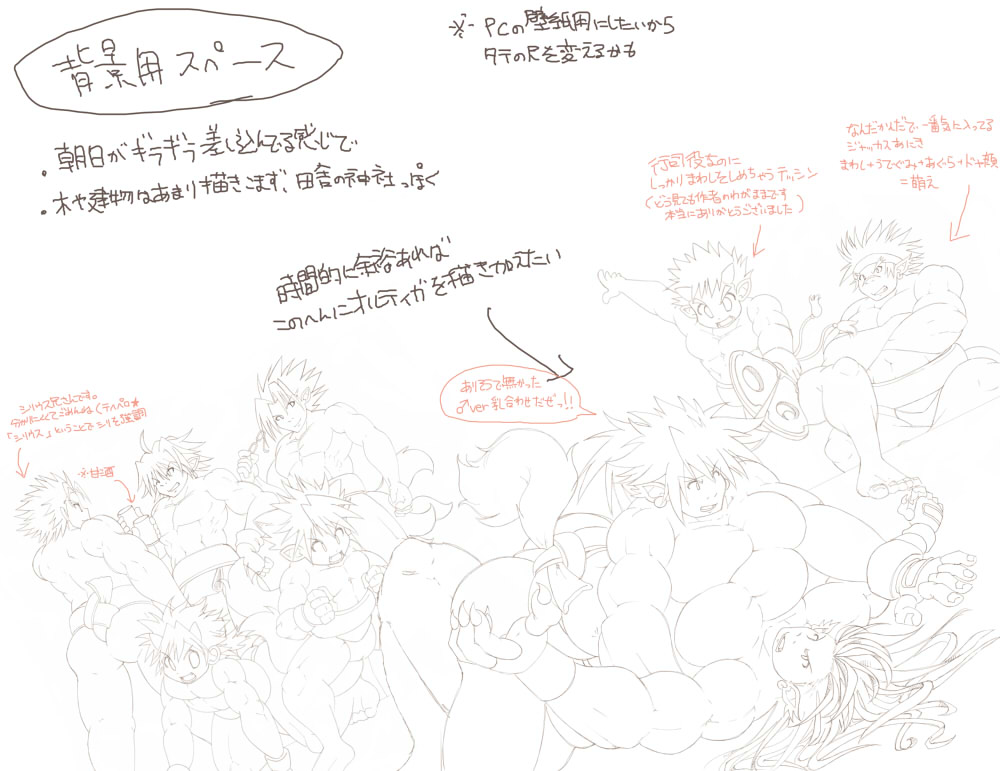 背景用スペース
※ PCの壁紙用にしたいから
タテの尺を変えるかも
・朝日がギラギラ差し込んでる感じで
・木や建物はあまり描きこまず、田舎の神社っぽく
時間的に余裕あれば
このへんにオルティガを描き加えたい
行司役なのに
しっかりまわしをしめちゃうテッシン
(どう見ても作者のわがままです
本当にありがとうございました)
なんだかんだで一番気に入ってる
ジャッカスあにき
まわし+うでぐみ+あぐら+ドヤ顔
=萌え
ありそうで無かった
♂ver乳合わせだぜっ!!
シリウス兄さんです。
分かりにくくてごめんね(テヘペロ★
「シリウス」ということでシリを強調
※甘酒